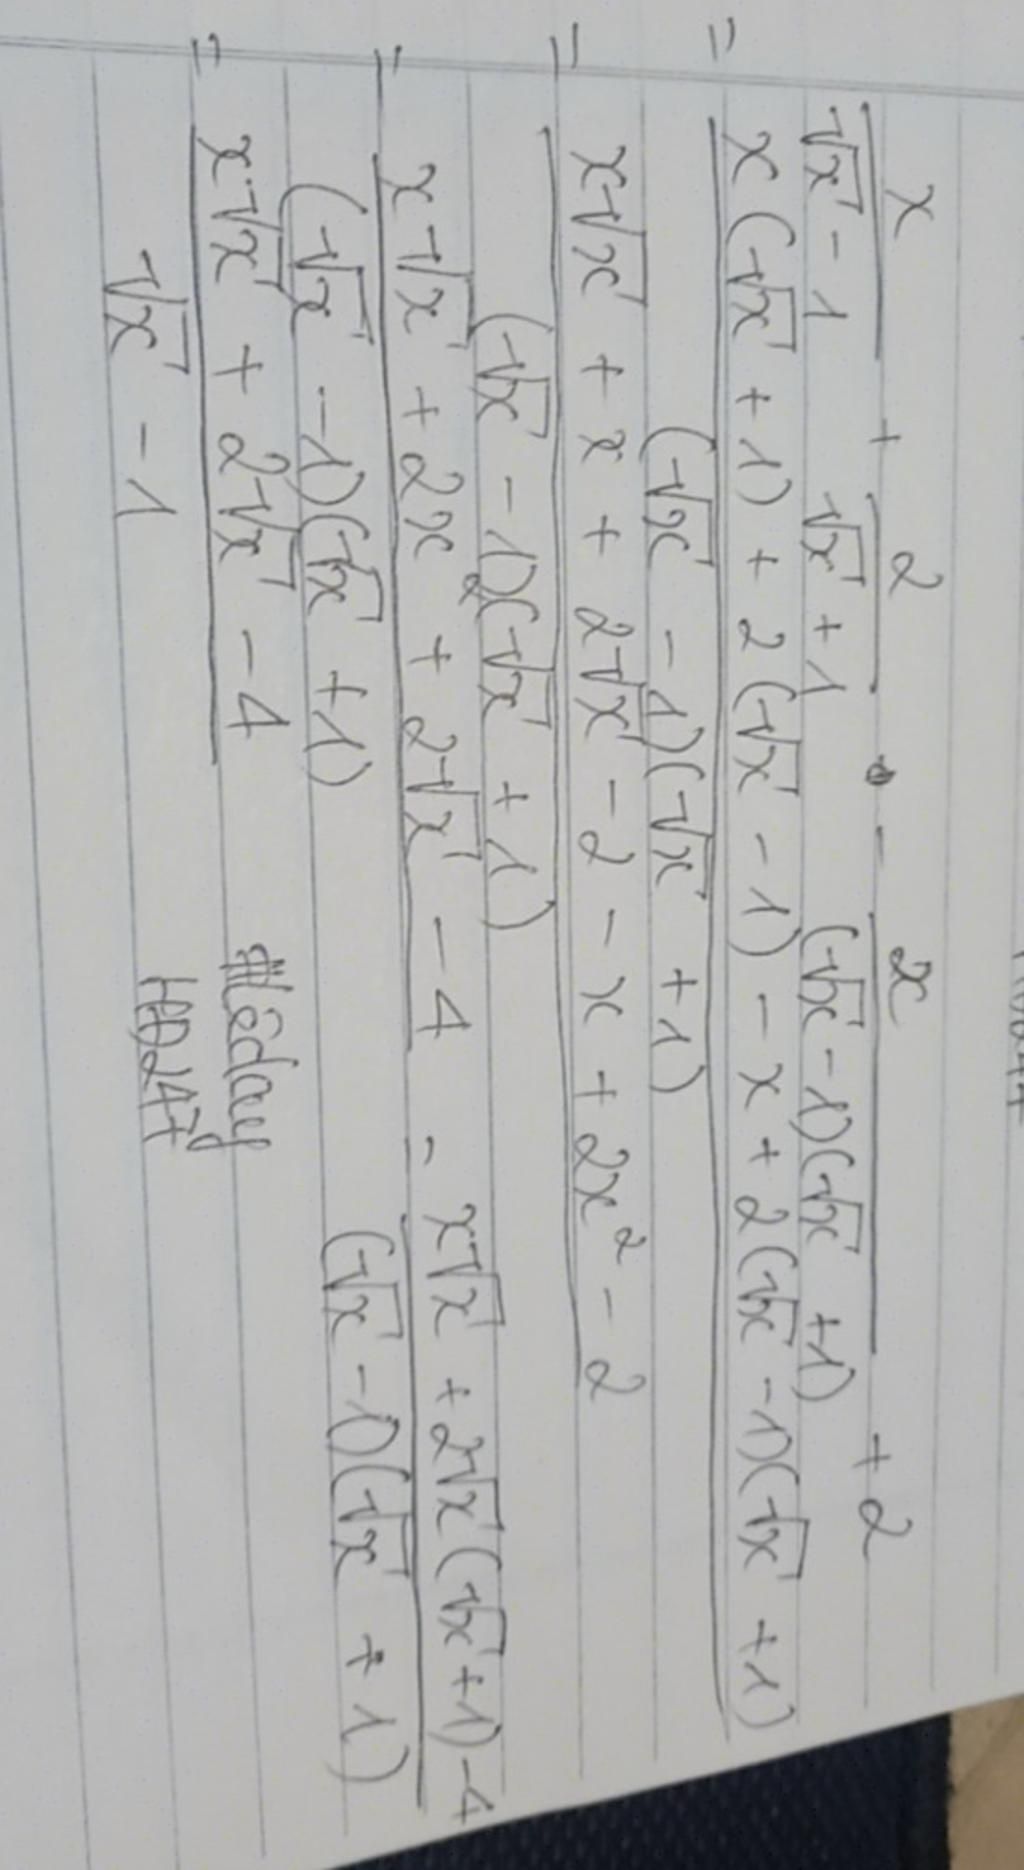 x/(√x - 1) + 2/(√x + 1) - x/((√x - 1)(√x + 1)) + 2
= (x(√x + 1) + 2(√x - 1) - x + 2(√x - 1)(√x + 1))/((√x - 1)(√x + 1))
= (x√x + x + 2√x - 2 - x + 2x² - 2)/((√x - 1)(√x + 1))
= (x√x + 2x² + 2√x - 4)/((√x - 1)(√x + 1)) = (x√x + 2√x(√x + 1) - 4)/((√x - 1)(√x + 1))
= (x√x + 2√x - 4)/(√x - 1)